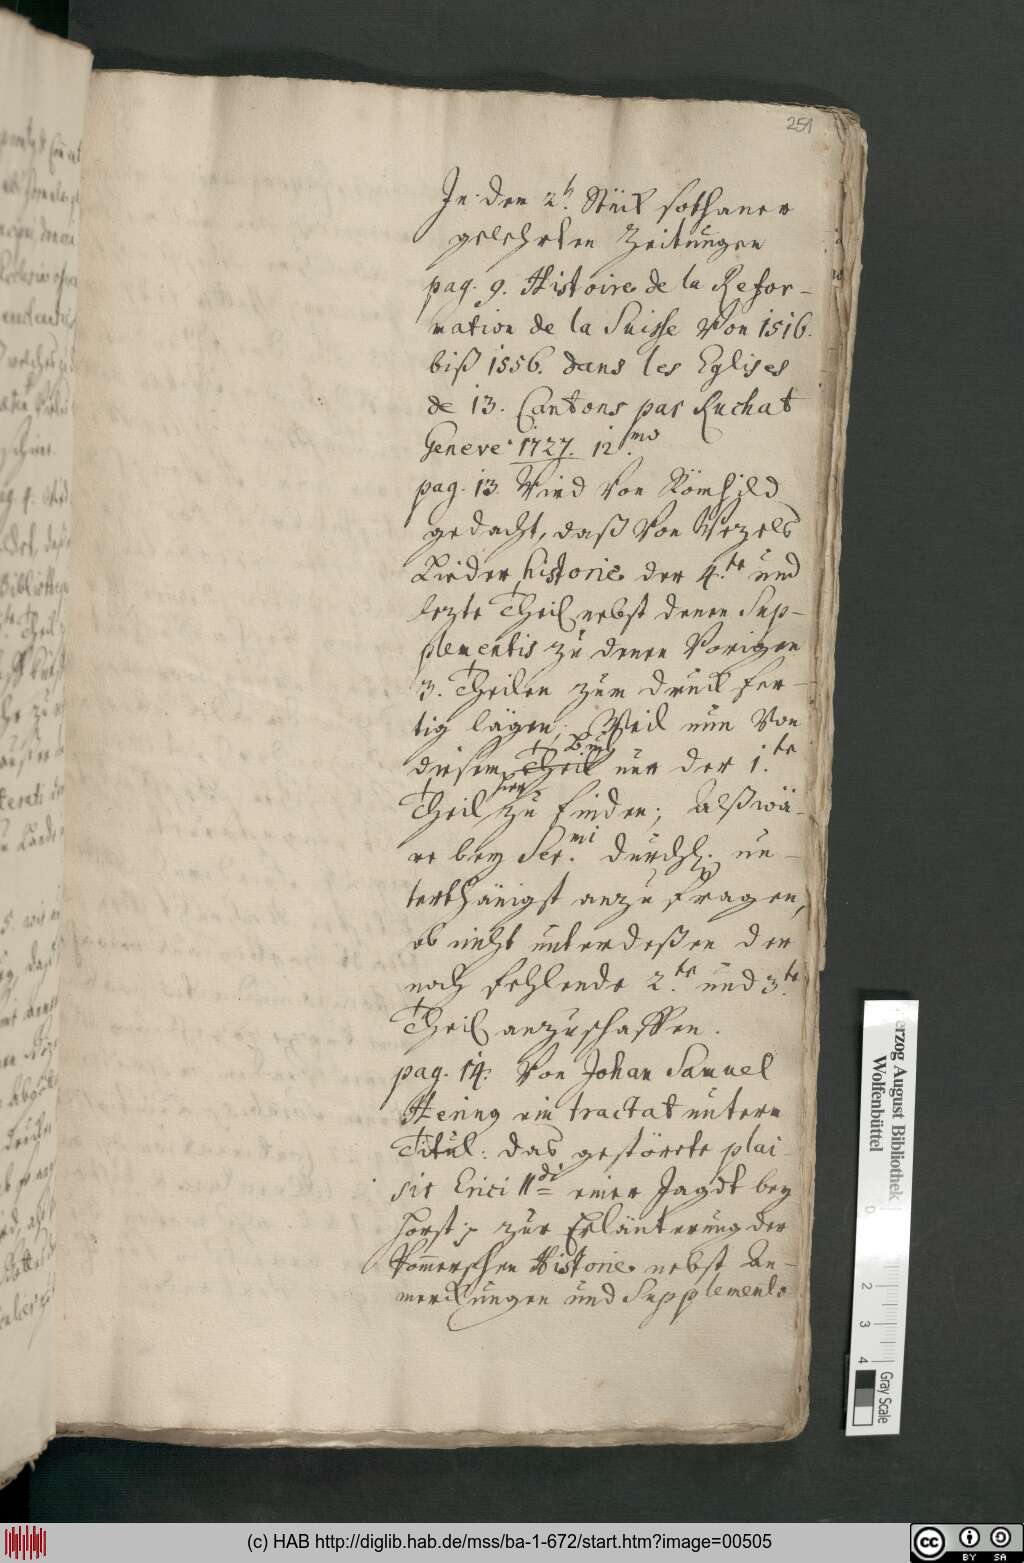 251
In den 2t. Stück sothaner
gelehrten Zeitungen
pag. 9. Histoire de la Refor-
mation de la Suisse von 1516.
biß 1556. dans les Eglises
de 13. Cantons par Ruchat
Geneve 1727. 12.mo
pag. 13. Wird von Römhild
gedacht, daß von Wezels
Lieder historie der 4.te und
lezte Theil nebst denen Sup-
plementis zu denen Vorigen
3. Theilen zum druck fer-
tig lägen; Weil nun Von
diesem Theil nur der 1.te
Theil hier zu finden; Alß wä-
re bey Ser.mi durchl. un-
terthänigst anzufragen,
ob nicht unterdeßen der
noch fehlende 2.te und 3.te
Theil anzuschaffen.
pag. 14. Von Johan Samuel
Hering ein tractat unterm
Titul: das gestörete plai-
sir Erici IIdi einer Jagdt bey
Horst; zur Erläuterung der
Pom̄erschen Historie nebst An-
merckungen und Supplemento
Herzog August Bibliothek
Wolfenbüttel
0
2
3
4
Gray Scale
(c) HAB http://diglib.hab.de/mss/ba-1-672/start.htm?image=00505
cc
BY SA